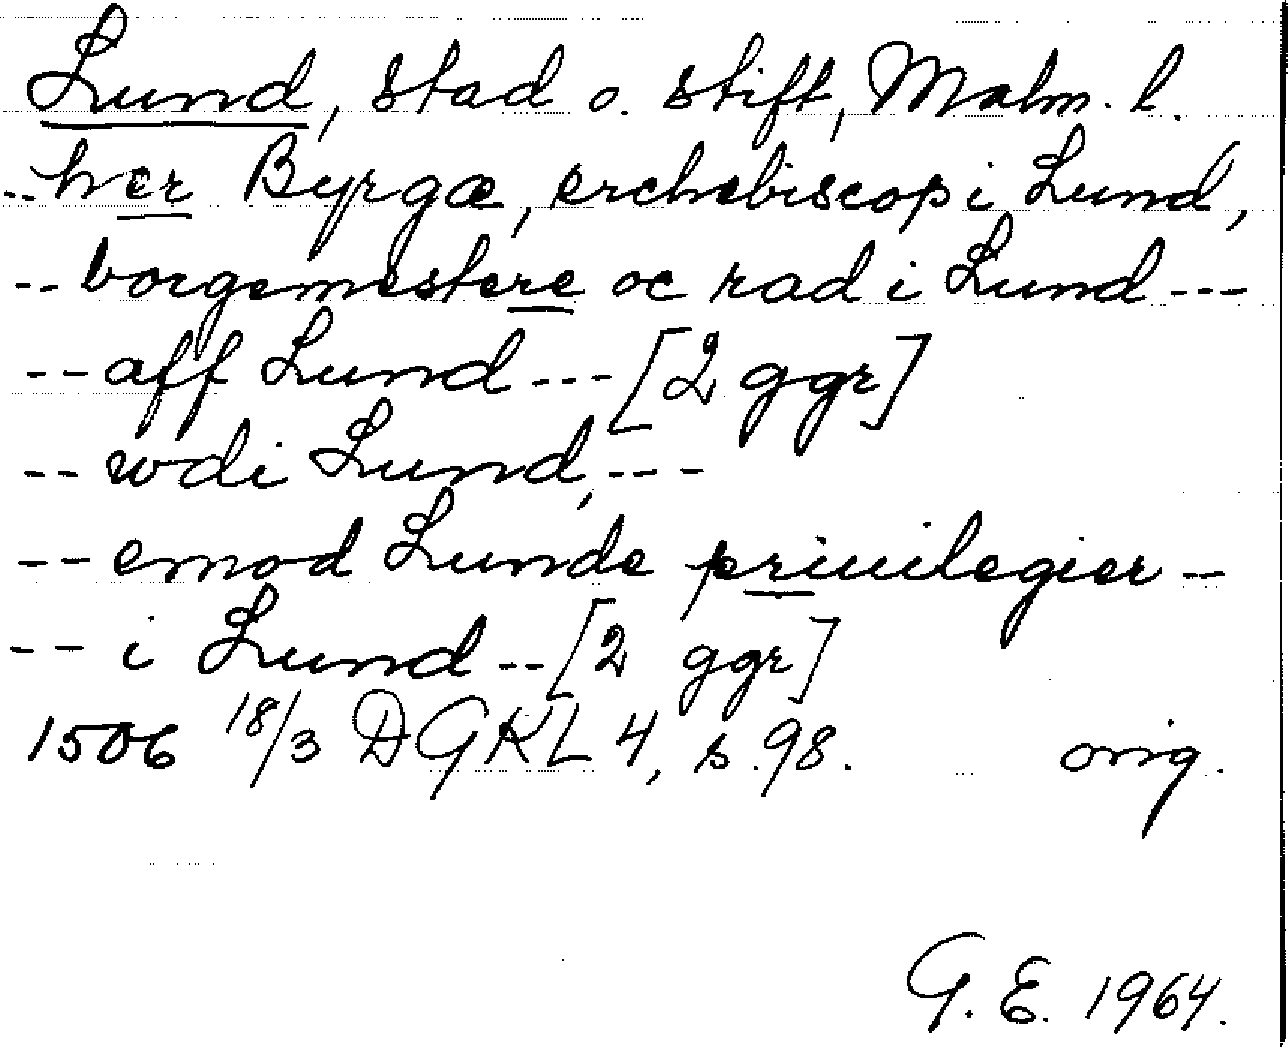 Lund, stad o. stift, Malm. l.
-- her Byrgæ, erchebiscop i Lund,
-- borgemestere oc rad i Lund ---
-- aff Lund --- [2 ggr]
-- wdi Lund, ---
-- emod Lunde priuilegier --
-- i Lund -- [2 ggr]
1506 18/3 DGKL 4, s. 98. orig.
G. E. 1964.